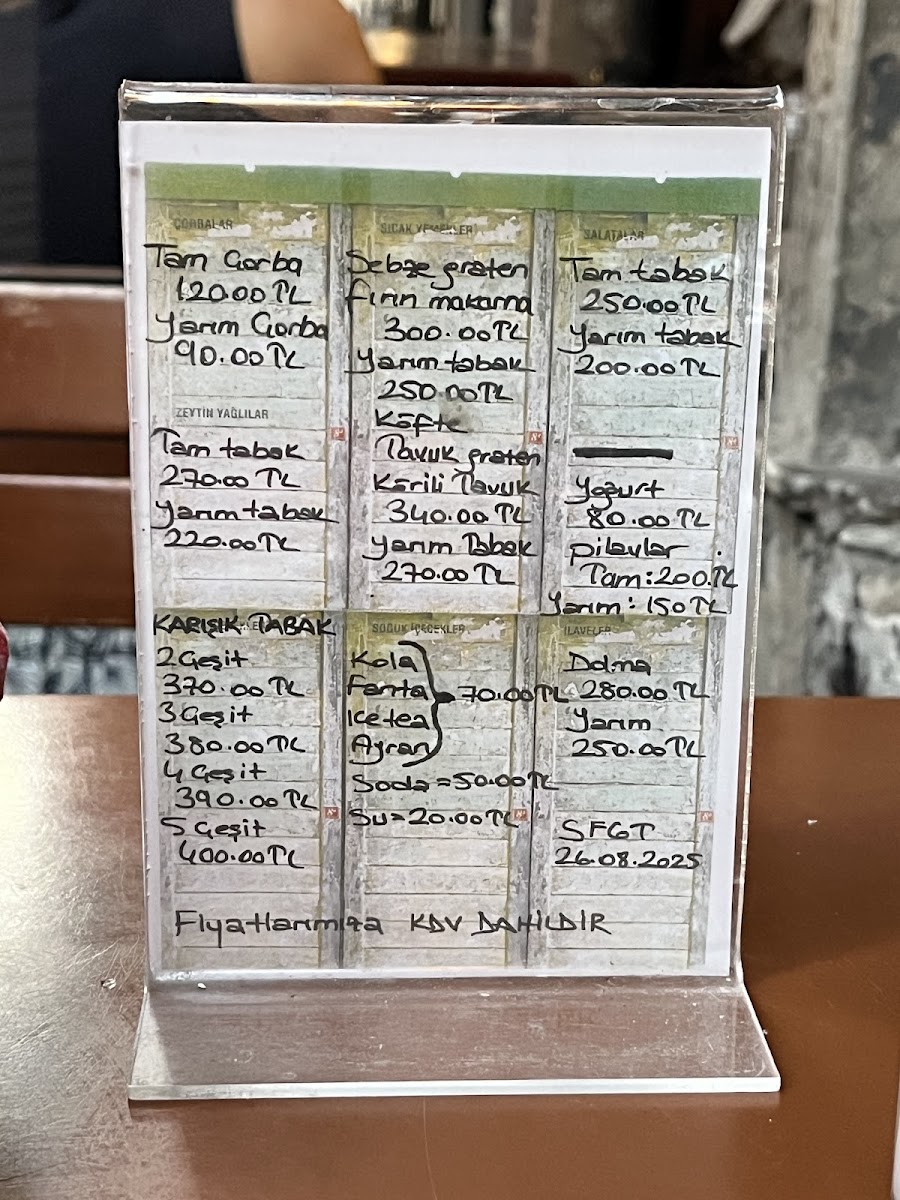 ÇORBALAR
Tam Çorba
120.00 TL
Yarım Çorba
90.00 TL
ZEYTİN YAĞLILAR
Tam tabak
270.00 TL
Yarım tabak
220.00 TL
SICAK YEMEKLER
Sebze graten
fırın makarna
300.00 TL
Yarım tabak
250.00 TL
Köfte
Tavuk graten
Körili Tavuk
340.00 TL
Yarım Tabak
270.00 TL
SALATALAR
Tam tabak
250.00 TL
Yarım tabak
200.00 TL
Yoğurt
80.00 TL
pilavlar
Tam: 200.TL
Yarım: 150 TL
KARIŞIK TABAK
2 Çeşit
370.00 TL
3 Çeşit
380.00 TL
4 Çeşit
390.00 TL
5 Çeşit
400.00 TL
SOĞUK İÇECEKLER
Kola
Fanta = 70.00 TL
Icetea
Ayran
Soda = 50.00 TL
Su = 20.00 TL
İLAVELER
Dolma
280.00 TL
Yarım
250.00 TL
SFGT
26.08.2025
Fiyatlarımıza KDV DAHİLDİR